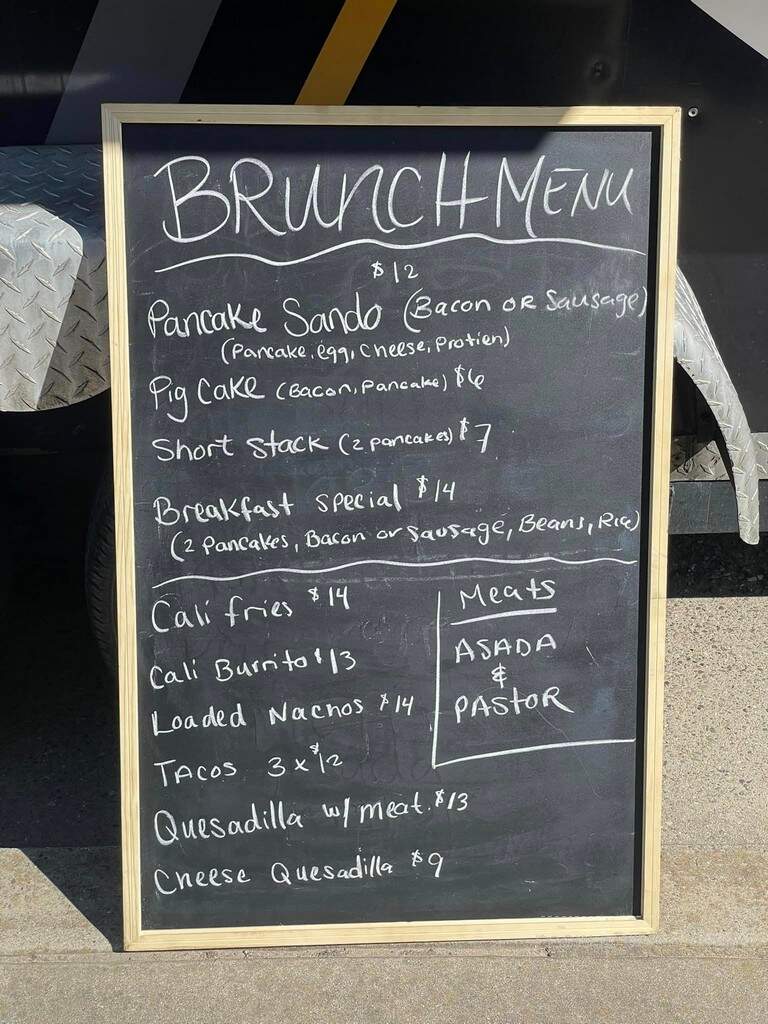 BRUNCH MENU
$12
Pancake Sando (Bacon or Sausage)
(Pancake, egg, cheese, Protien)
Pig Cake (Bacon, Pancake) $6
Short Stack (2 pancakes) $7
Breakfast special $14
(2 Pancakes, Bacon or Sausage, Beans, Rice)
Cali fries $14
Cali Burrito $13
Loaded Nachos $14
Tacos 3 x $12
Quesadilla w/ meat. $13
Cheese Quesadilla $9
Meats
ASADA
&
PASTOR